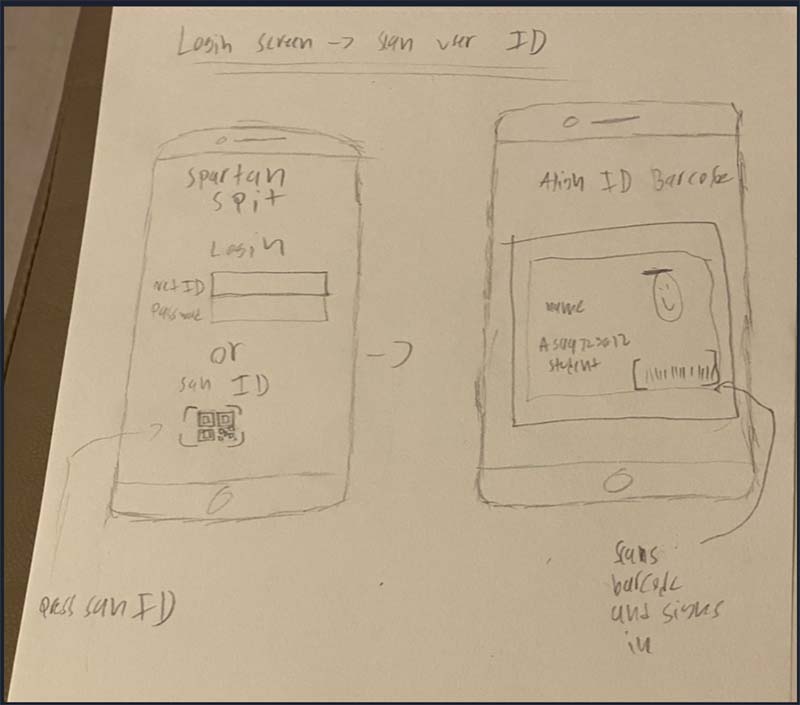 Login screen -> scan user ID
Spartan
Spit
Login
Net ID
Password
or
scan ID
press scan ID
->
Align ID Barcode
name
student
scans
barcode
and signs
in